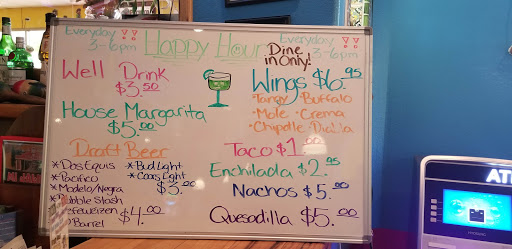 Everyday !!
3-6pm
Happy Hour
Dine
in Only!
Everyday !!
3-6pm
Well Drink
$3.50
House Margarita
$5.00
Draft Beer
*Dos Equis
*Pacifico
*Modelo/Negra
*Bud Light
*Coors Light
$3.00
$4.00
Barrel
Wings $6.95
•Tangy •Buffalo
•Mole •Crema
•Chipotle
Taco $1.00
Enchilada $2.95
Nachos $5.00
Quesadilla $5.00
AT